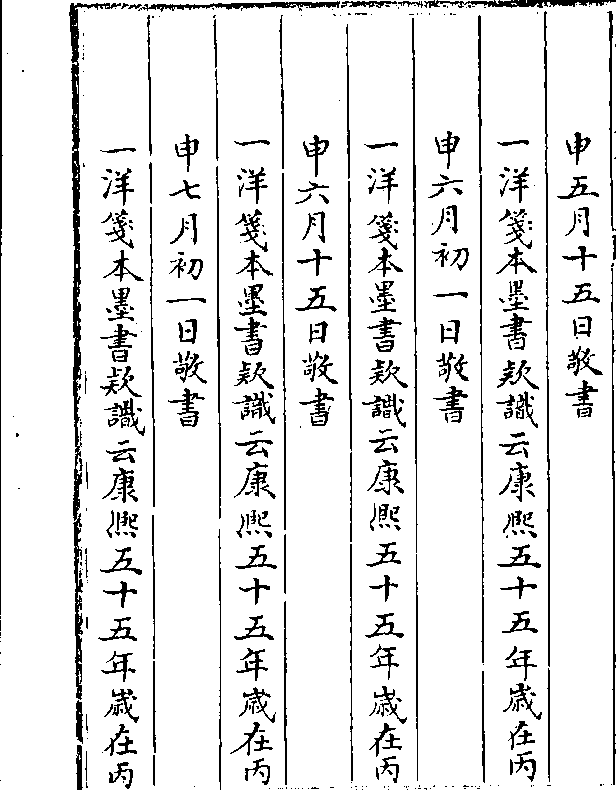 申五月十五日敬書
一洋箋本墨書欵識云康熙五十五年歲在丙
申六月初一日敬書
一洋箋本墨書欵識云康熙五十五年歲在丙
申六月十五日敬書
一洋箋本墨書欵識云康熙五十五年歲在丙
申七月初一日敬書
一洋箋本墨書欵識云康熙五十五年歲在丙